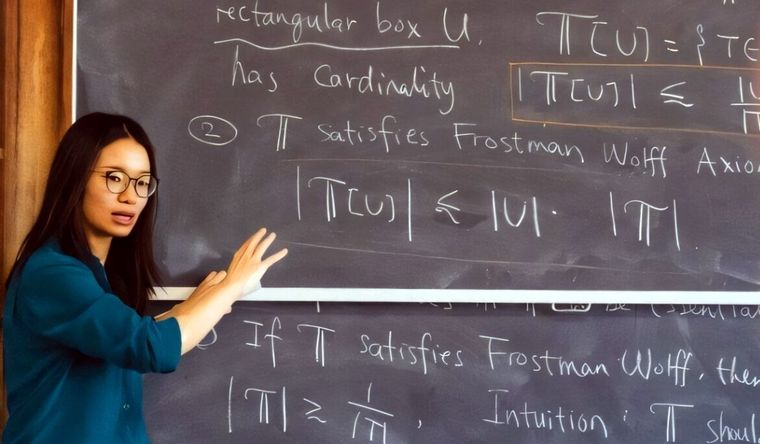 rectangular box U.
𝕋[U] = { T ∈
has Cardinality
|𝕋[U]| ≲ |U
② 𝕋 satisfies Frostman Wolff Axio
|𝕋[U]| ≲ |U| · |𝕋|.
If 𝕋 satisfies Frostman Wolff, then
|𝕋| ≳ 1/|T|, Intuition : 𝕋 shoul